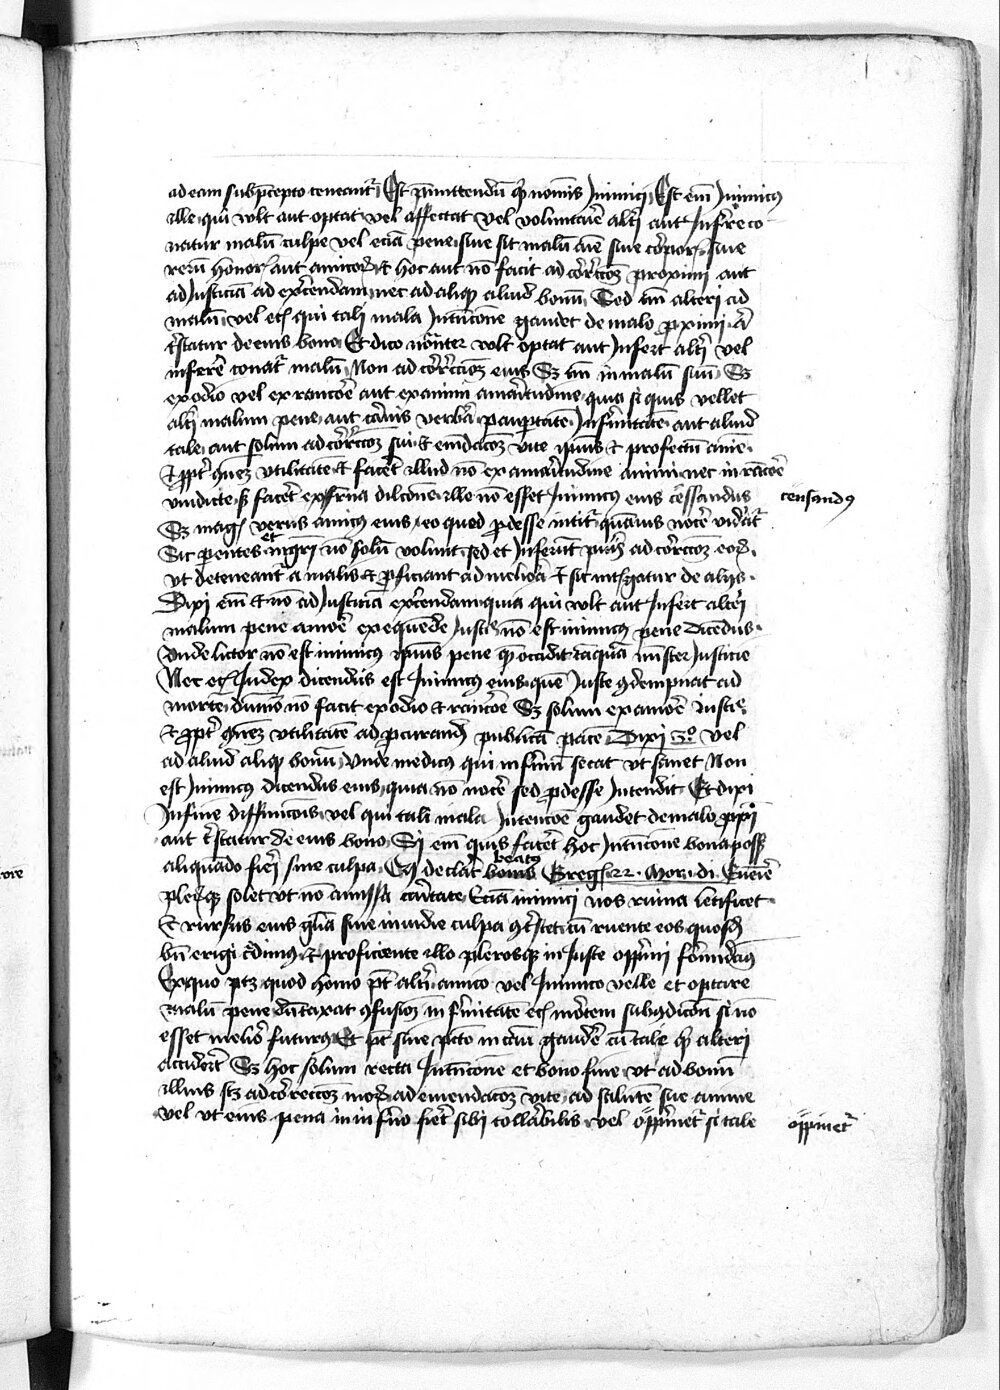 ad eam sub p̄cepto teneant᷑ Est p̄mittendū qͥ nomīs Inimici Est em̄ Inimicꝰ
ille qui vult aut optat vel affectat vel voluntarie altī aut Inferre co
natur malū culpe vel eciā pene siue sit malū aīe siue corꝑoris siue
rerū honorꝫ aut amicorꝫ Et hoc aut nō facit ad correccōꝫ proximi aut
ad Iusticiā ad exercendam nec ad aliqͥ aliud bonū Sed tm̄ alteri ad
malū vel eciā qui tali mala Intencione gaudet de malo ꝓximi aut
tristatur de eius bono Et dico notanter vult optat aut Infert altī vel
inferre conat᷑ malū Non ad correccōꝫ eius Sꝫ tm̄ in malū suū Sꝫ
ex odio vel ex rancore aut ex animi amaritudine quia si quis vellet
altī malum pene aut carnis verbera paupertatē Infirmitatē aut aliud
tale aut solum ad correccōꝫ sui Et emēdacōꝫ vite ipsius Et profectū anime
Et ꝓpter cōmunē vtilitatē Et faceret illud nō ex amaritudine animi nec in rancore
vindicte sꝫ faceret ex fraterna dileccione ille nō esset Inimicꝰ eius cēssandus
censandꝰ
Sꝫ magis verus amicꝰ eius eo quod ꝓdesse intēdit quamuis nocere videat᷑
Sic parentes et mgr̄i nō solū volunt sed et Inferunt pueris ad correccōꝫ eorꝫ
vt deteneant᷑ a malis Et proficiant ad meliora Et sic intelligatur de alijs
Dixi em̄ Et nō ad Iusticiā exercendam quia qui vult aut Infert alteri
malum pene amore exequende Iusticie nō est inimicꝰ pene dicedus
Vnde lictor nō est inimicꝰ ipsius pene quē occidit tāquā minister Iusticie
Nec eciā Iudex dicendus est Inimicꝰ eius quē Iuste condempnat ad
mortē dūmō nō facit ex odio et rancore Sꝫ solum ex amore iusticie
Et ꝓpter cōmunē vtilitatē ad procurandā publicā pacē Dixi 3º vel
ad aliud aliqͥ bonū Vnde medicus qui infirmū secat vt sanet Non
est Inimicꝰ dicendus eius quia nō nocere sed ꝓdesse Intendit Et dixi
In fine diffinicionis vel qui tali mala Intencione gaudet de malo ꝓximi
aut tristatur de eius bono Si em̄ quis faceret hoc Intencione bona posset
aliquando fieri sine culpa Et declarat beatus Greg 22 Mor di Euenire
plerūqꝫ solet vt nō amissa caritate Eciā inimici nos ruina letificet
Et rursus eius gloria sine inuidie culpa contristet cū ruente eos quosdā
bene erigi credimus Et proficiente illo plerosqꝫ in Iuste opprimi formidamꝰ
Ex quo patet quod homo potest altī amico vel Inimico velle et optare
malū pene dūtaxat confusionē infirmitatē eciā mortem sub condicione si nō
esset melior futurus Et potest sine peccato in eciam gaudere cū tale qͥ alteri
accideret Sꝫ hoc solum recta Intencione et bono fine vt ad bonū
illius scꝫ ad correccōꝫ morū ad emendacōꝫ vite ad salutē sue anime
vel vt eius pena in inferno fieret sibi tollerabilis vel opprimet᷑ si tale
opprimet᷑